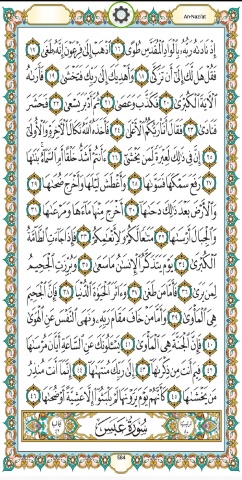 An-Nazi'at
إِذْ نَادَىٰهُ رَبُّهُۥ بِٱلْوَادِ ٱلْمُقَدَّسِ طُوًى ١٦ ٱذْهَبْ إِلَىٰ فِرْعَوْنَ إِنَّهُۥ طَغَىٰ ١٧
فَقُلْ هَل لَّكَ إِلَىٰٓ أَن تَزَكَّىٰ ١٨ وَأَهْدِيَكَ إِلَىٰ رَبِّكَ فَتَخْشَىٰ ١٩ فَأَرَىٰهُ
ٱلْءَايَةَ ٱلْكُبْرَىٰ ٢٠ فَكَذَّبَ وَعَصَىٰ ٢١ ثُمَّ أَدْبَرَ يَسْعَىٰ ٢٢ فَحَشَرَ
فَنَادَىٰ ٢٣ فَقَالَ أَنَا۠ رَبُّكُمُ ٱلْأَعْلَىٰ ٢٤ فَأَخَذَهُ ٱللَّهُ نَكَالَ ٱلْءَاخِرَةِ وَٱلْأُولَىٰٓ
٢٥ إِنَّ فِى ذَٰلِكَ لَعِبْرَةً لِّمَن يَخْشَىٰٓ ٢٦ ءَأَنتُمْ أَشَدُّ خَلْقًا أَمِ ٱلسَّمَآءُ بَنَىٰهَا
٢٧ رَفَعَ سَمْكَهَا فَسَوَّىٰهَا ٢٨ وَأَغْطَشَ لَيْلَهَا وَأَخْرَجَ ضُحَىٰهَا ٢٩
وَٱلْأَرْضَ بَعْدَ ذَٰلِكَ دَحَىٰهَآ ٣٠ أَخْرَجَ مِنْهَا مَآءَهَا وَمَرْعَىٰهَا ٣١
وَٱلْجِبَالَ أَرْسَىٰهَا ٣٢ مَتَٰعًا لَّكُمْ وَلِأَنْعَٰمِكُمْ ٣٣ فَإِذَا جَآءَتِ ٱلطَّآمَّةُ
ٱلْكُبْرَىٰ ٣٤ يَوْمَ يَتَذَكَّرُ ٱلْإِنسَٰنُ مَا سَعَىٰ ٣٥ وَبُرِّزَتِ ٱلْجَحِيمُ
لِمَن يَرَىٰ ٣٦ فَأَمَّا مَن طَغَىٰ ٣٧ وَءَاثَرَ ٱلْحَيَوٰةَ ٱلدُّنْيَا ٣٨ فَإِنَّ ٱلْجَحِيمَ
هِىَ ٱلْمَأْوَىٰ ٣٩ وَأَمَّا مَنْ خَافَ مَقَامَ رَبِّهِۦ وَنَهَى ٱلنَّفْسَ عَنِ ٱلْهَوَىٰ
٤٠ فَإِنَّ ٱلْجَنَّةَ هِىَ ٱلْمَأْوَىٰ ٤١ يَسْـَٔلُونَكَ عَنِ ٱلسَّاعَةِ أَيَّانَ مُرْسَىٰهَا
٤٢ فِيمَ أَنتَ مِن ذِكْرَىٰهَآ ٤٣ إِلَىٰ رَبِّكَ مُنتَهَىٰهَآ ٤٤ إِنَّمَآ أَنتَ مُنذِرُ
مَن يَخْشَىٰهَا ٤٥ كَأَنَّهُمْ يَوْمَ يَرَوْنَهَا لَمْ يَلْبَثُوٓا۟ إِلَّا عَشِيَّةً أَوْ ضُحَىٰهَا ٤٦
سُورَةُ عَبَسَ
584